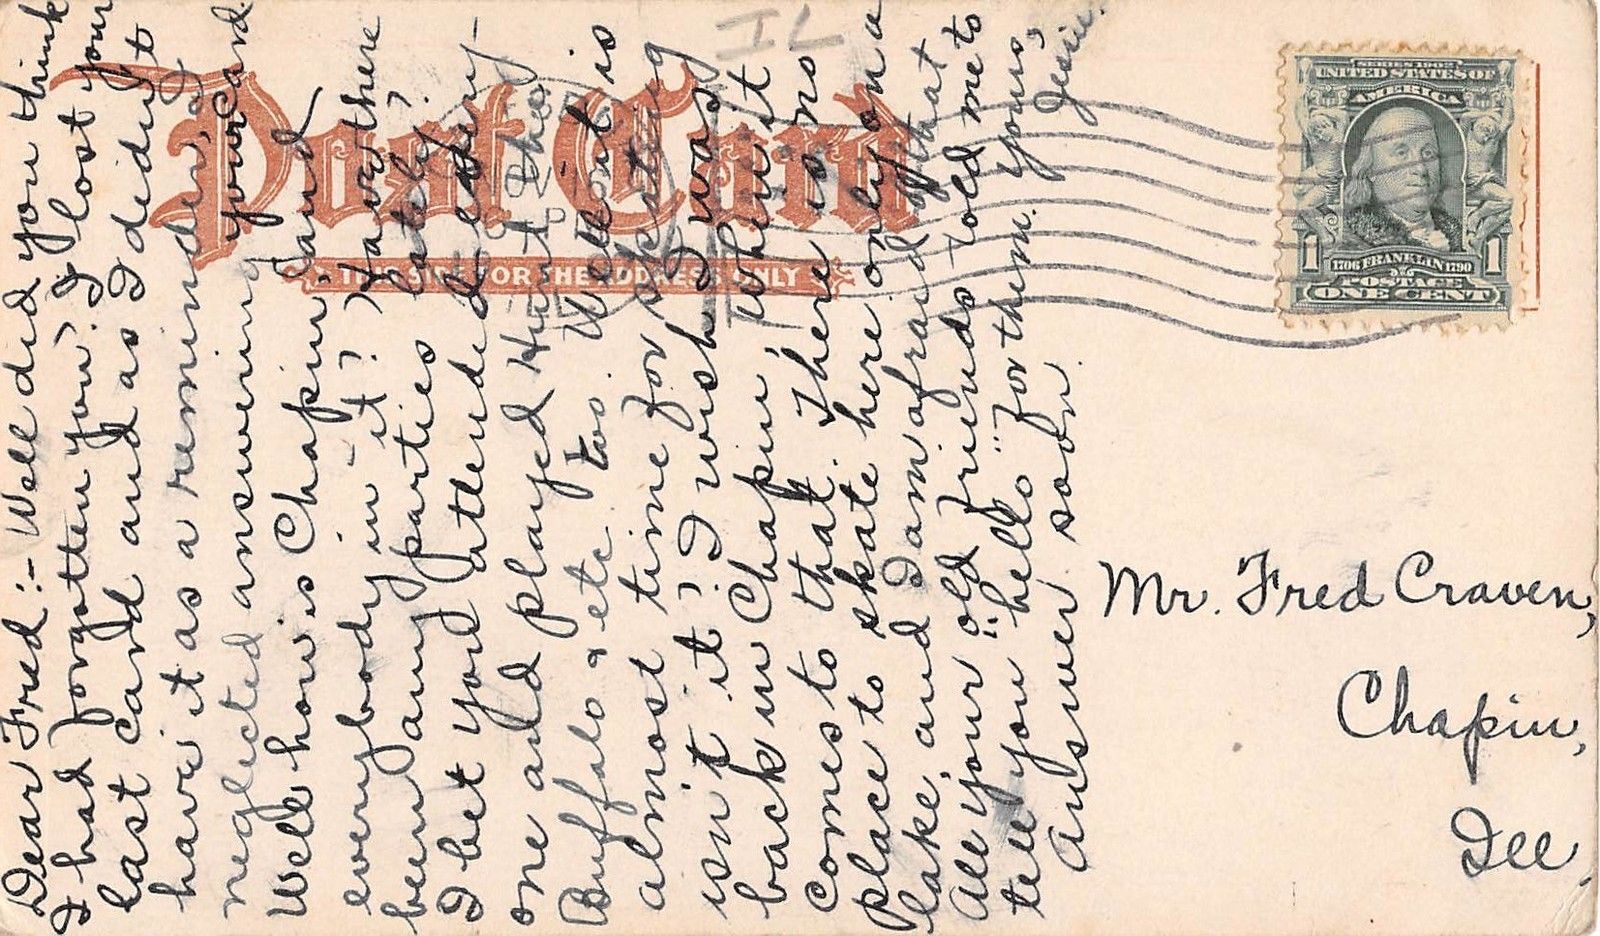 Dear Fred:- Well did you think
I had forgotten you? I lost your
last card and as I didn't
have it as a reminder, I
neglected answering your card.
Well how is Chapin, and
everybody in it? Have there
been any parties lately?
I bet you attended every
one and played Hunt the
Buffalo & etc. too. Well it is
almost time for skating
isn't it? I wish I was
back in Chapin, when it
comes to that. There is no
place to skate here only on a
lake and I am afraid of that
All your "old friends told me to
tell you "hello" for them. yours,
Answer soon. Jessie.
IL
Post Card
THIS SIDE FOR THE ADDRESS ONLY
SERIES 1902
UNITED STATES OF
AMERICA
1 1706 FRANKLIN 1790 1
POSTAGE
ONE CENT
Mr. Fred Craven,
Chapin,
Ill.